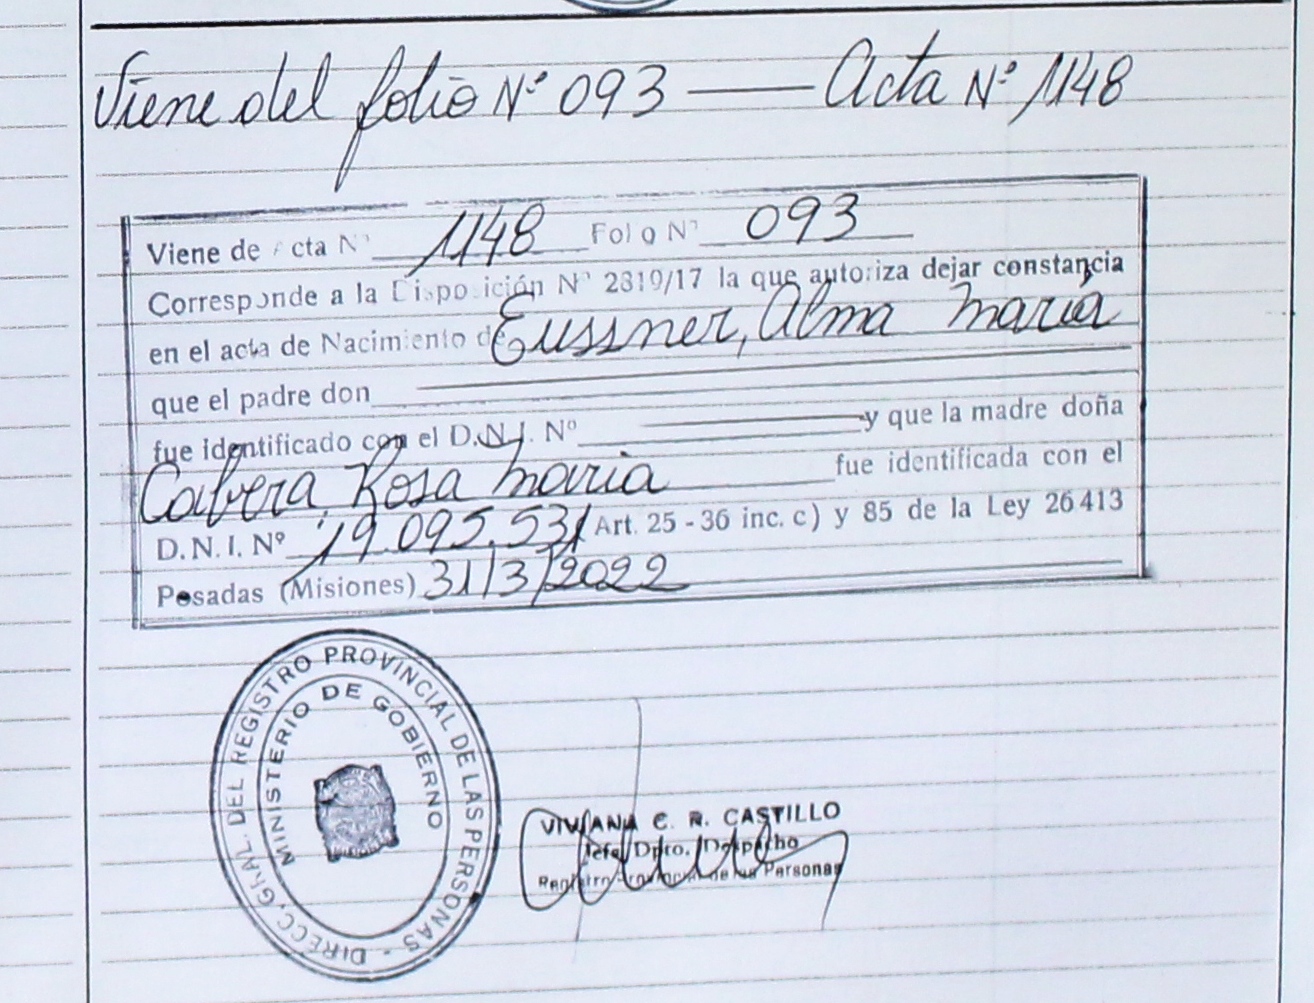 Viene del folio Nº 093 —— Acta Nº 1148
Viene de Acta Nº 1148 Folio Nº 093
Corresponde a la Disposición Nº 2819/17 la que autoriza dejar constancia
en el acta de Nacimiento de Eussner, Alma Maria
que el padre don
fue identificado con el D.N.I. Nº y que la madre doña
Cabrera, Rosa Maria fue identificada con el
D.N.I. Nº 19.095.531 Art. 25 - 36 inc. c) y 85 de la Ley 26413
Posadas (Misiones) 31/3/2022
DIRECC. GRAL. DEL REGISTRO PROVINCIAL DE LAS PERSONAS -
MINISTERIO DE GOBIERNO
VIVIANA C. R. CASTILLO
Jefa Dpto. Despacho
Registro Provincial de las Personas